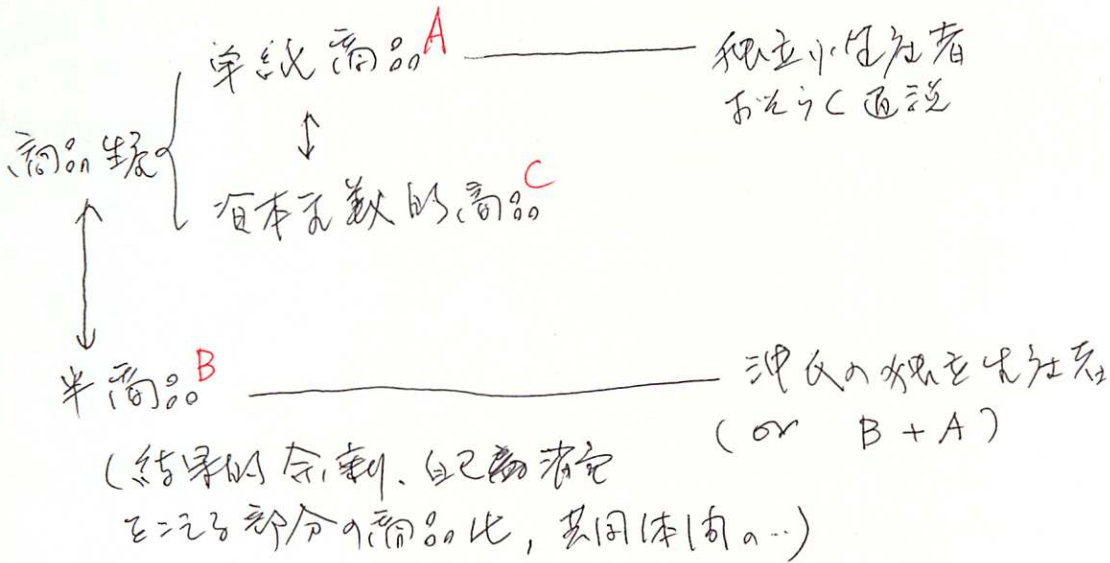 単純商品A 独立小生産者
おそらく通説
商品生産
資本主義的商品C
半商品B 沖氏の独立生産者
(or B+A)
(結果的余剰、自己消費
をこえる部分の商品化, 共同体内の…)